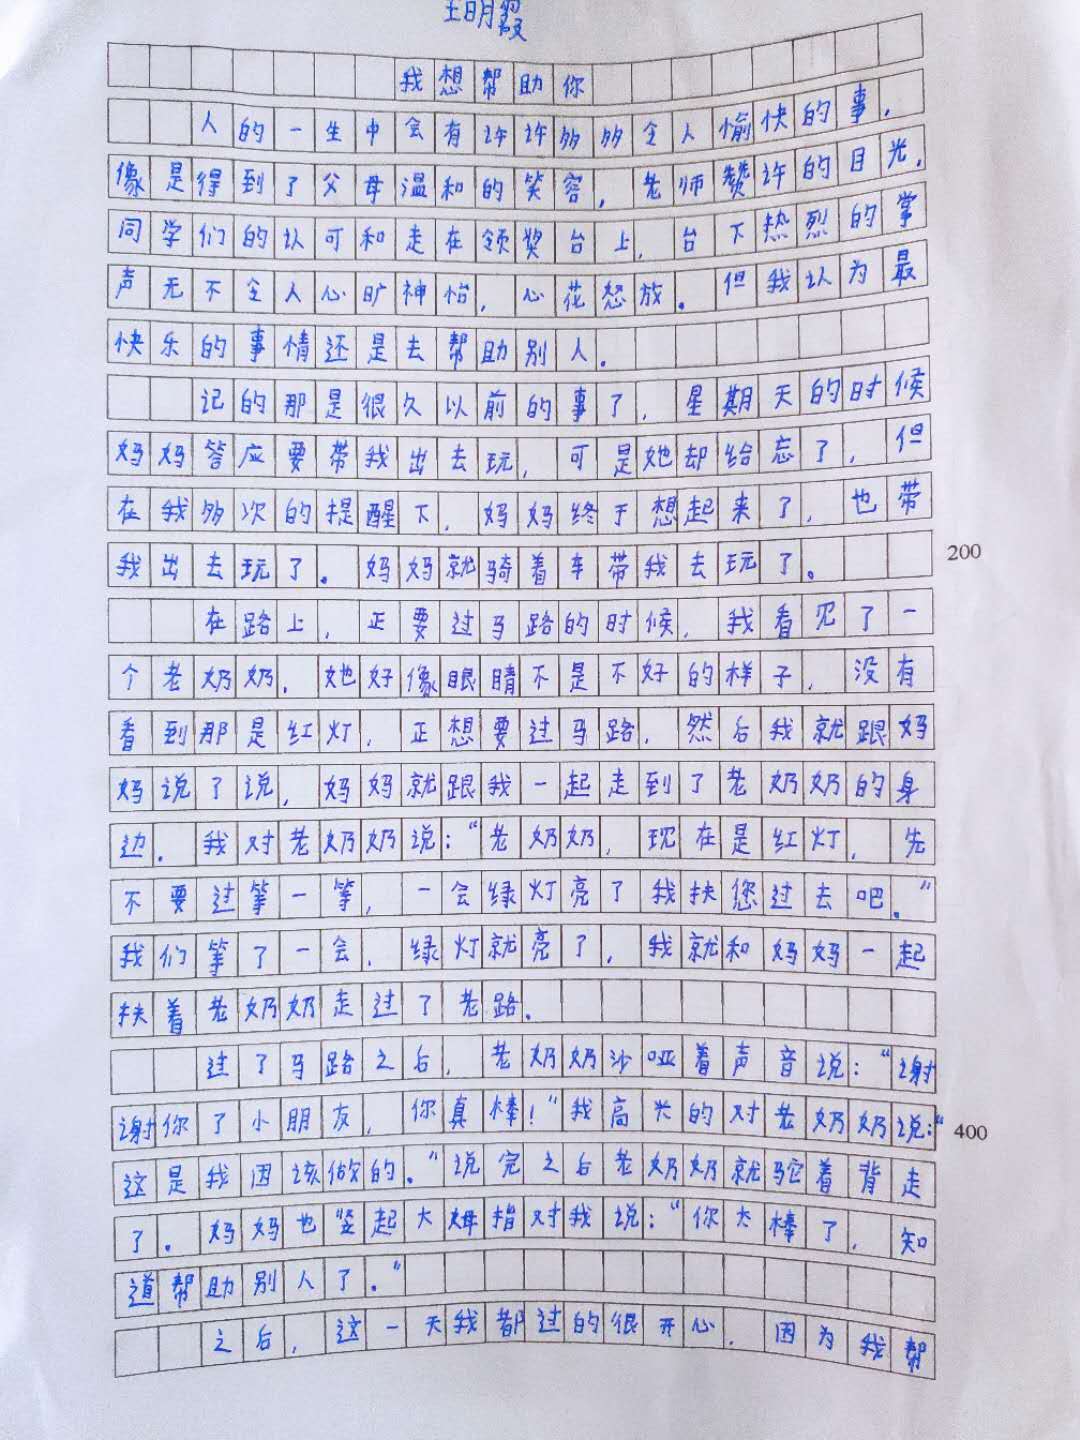 我想帮助你
人的一生中会有许许多多令人愉快的事，
像是得到了父母温和的笑容，老师赞许的目光，
同学们的认可和走在领奖台上，台下热烈的掌
声无不令人心旷神怡，心花怒放。但我认为最
快乐的事情还是去帮助别人。
记的那是很久以前的事了，星期天的时候
妈妈答应要带我出去玩，可是她却给忘了，但
在我多次的提醒下，妈妈终于想起来了，也带
我出去玩了。妈妈就骑着车带我去玩了。
200
在路上，正要过马路的时候，我看见了一
个老奶奶，她好像眼睛不是不好的样子，没有
看到那是红灯，正想要过马路，然后我就跟妈
妈说了说，妈妈就跟我一起走到了老奶奶的身
边。我对老奶奶说：“老奶奶，现在是红灯，先
不要过等一等，一会绿灯亮了我扶您过去吧。”
我们等了一会，绿灯就亮了，我就和妈妈一起
扶着老奶奶走过了老路。
过了马路之后，老奶奶沙哑着声音说：“谢
谢你了小朋友，你真棒！”我高兴的对老奶奶说：“
400
这是我因该做的。”说完之后老奶奶就驼着背走
了。妈妈也竖起大姆指对我说：“你太棒了，知
道帮助别人了。”
之后，这一天我都过的很开心，因为我帮